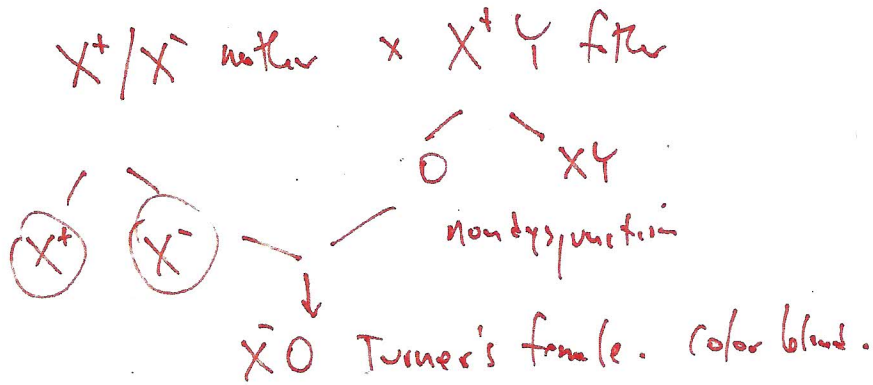 X⁺/X⁻ mother x X⁺Y father
O XY
nondysjunction
X⁺ X⁻
X⁻O Turner's female. Color blind.